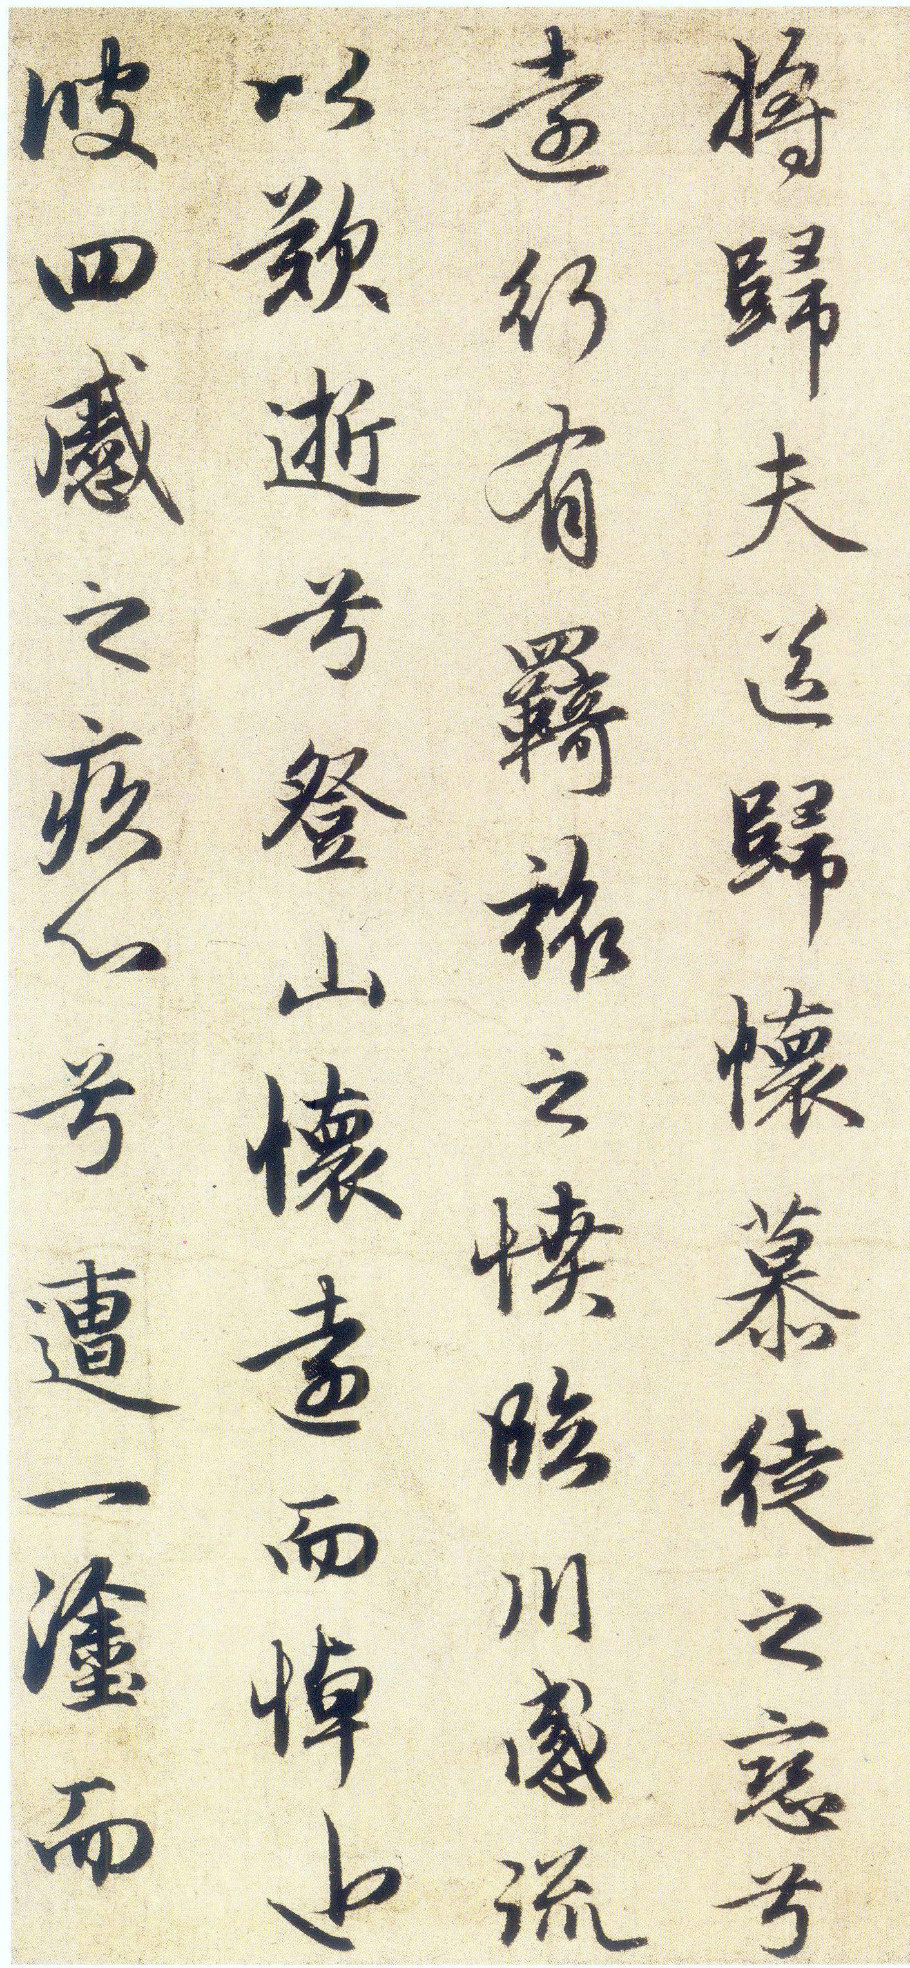 將歸夫送歸懷慕徒之戀兮
遠行有羇旅之憤臨川感流
以歎逝兮登山懷遠而悼近
彼四慼之疚心兮遭一塗而